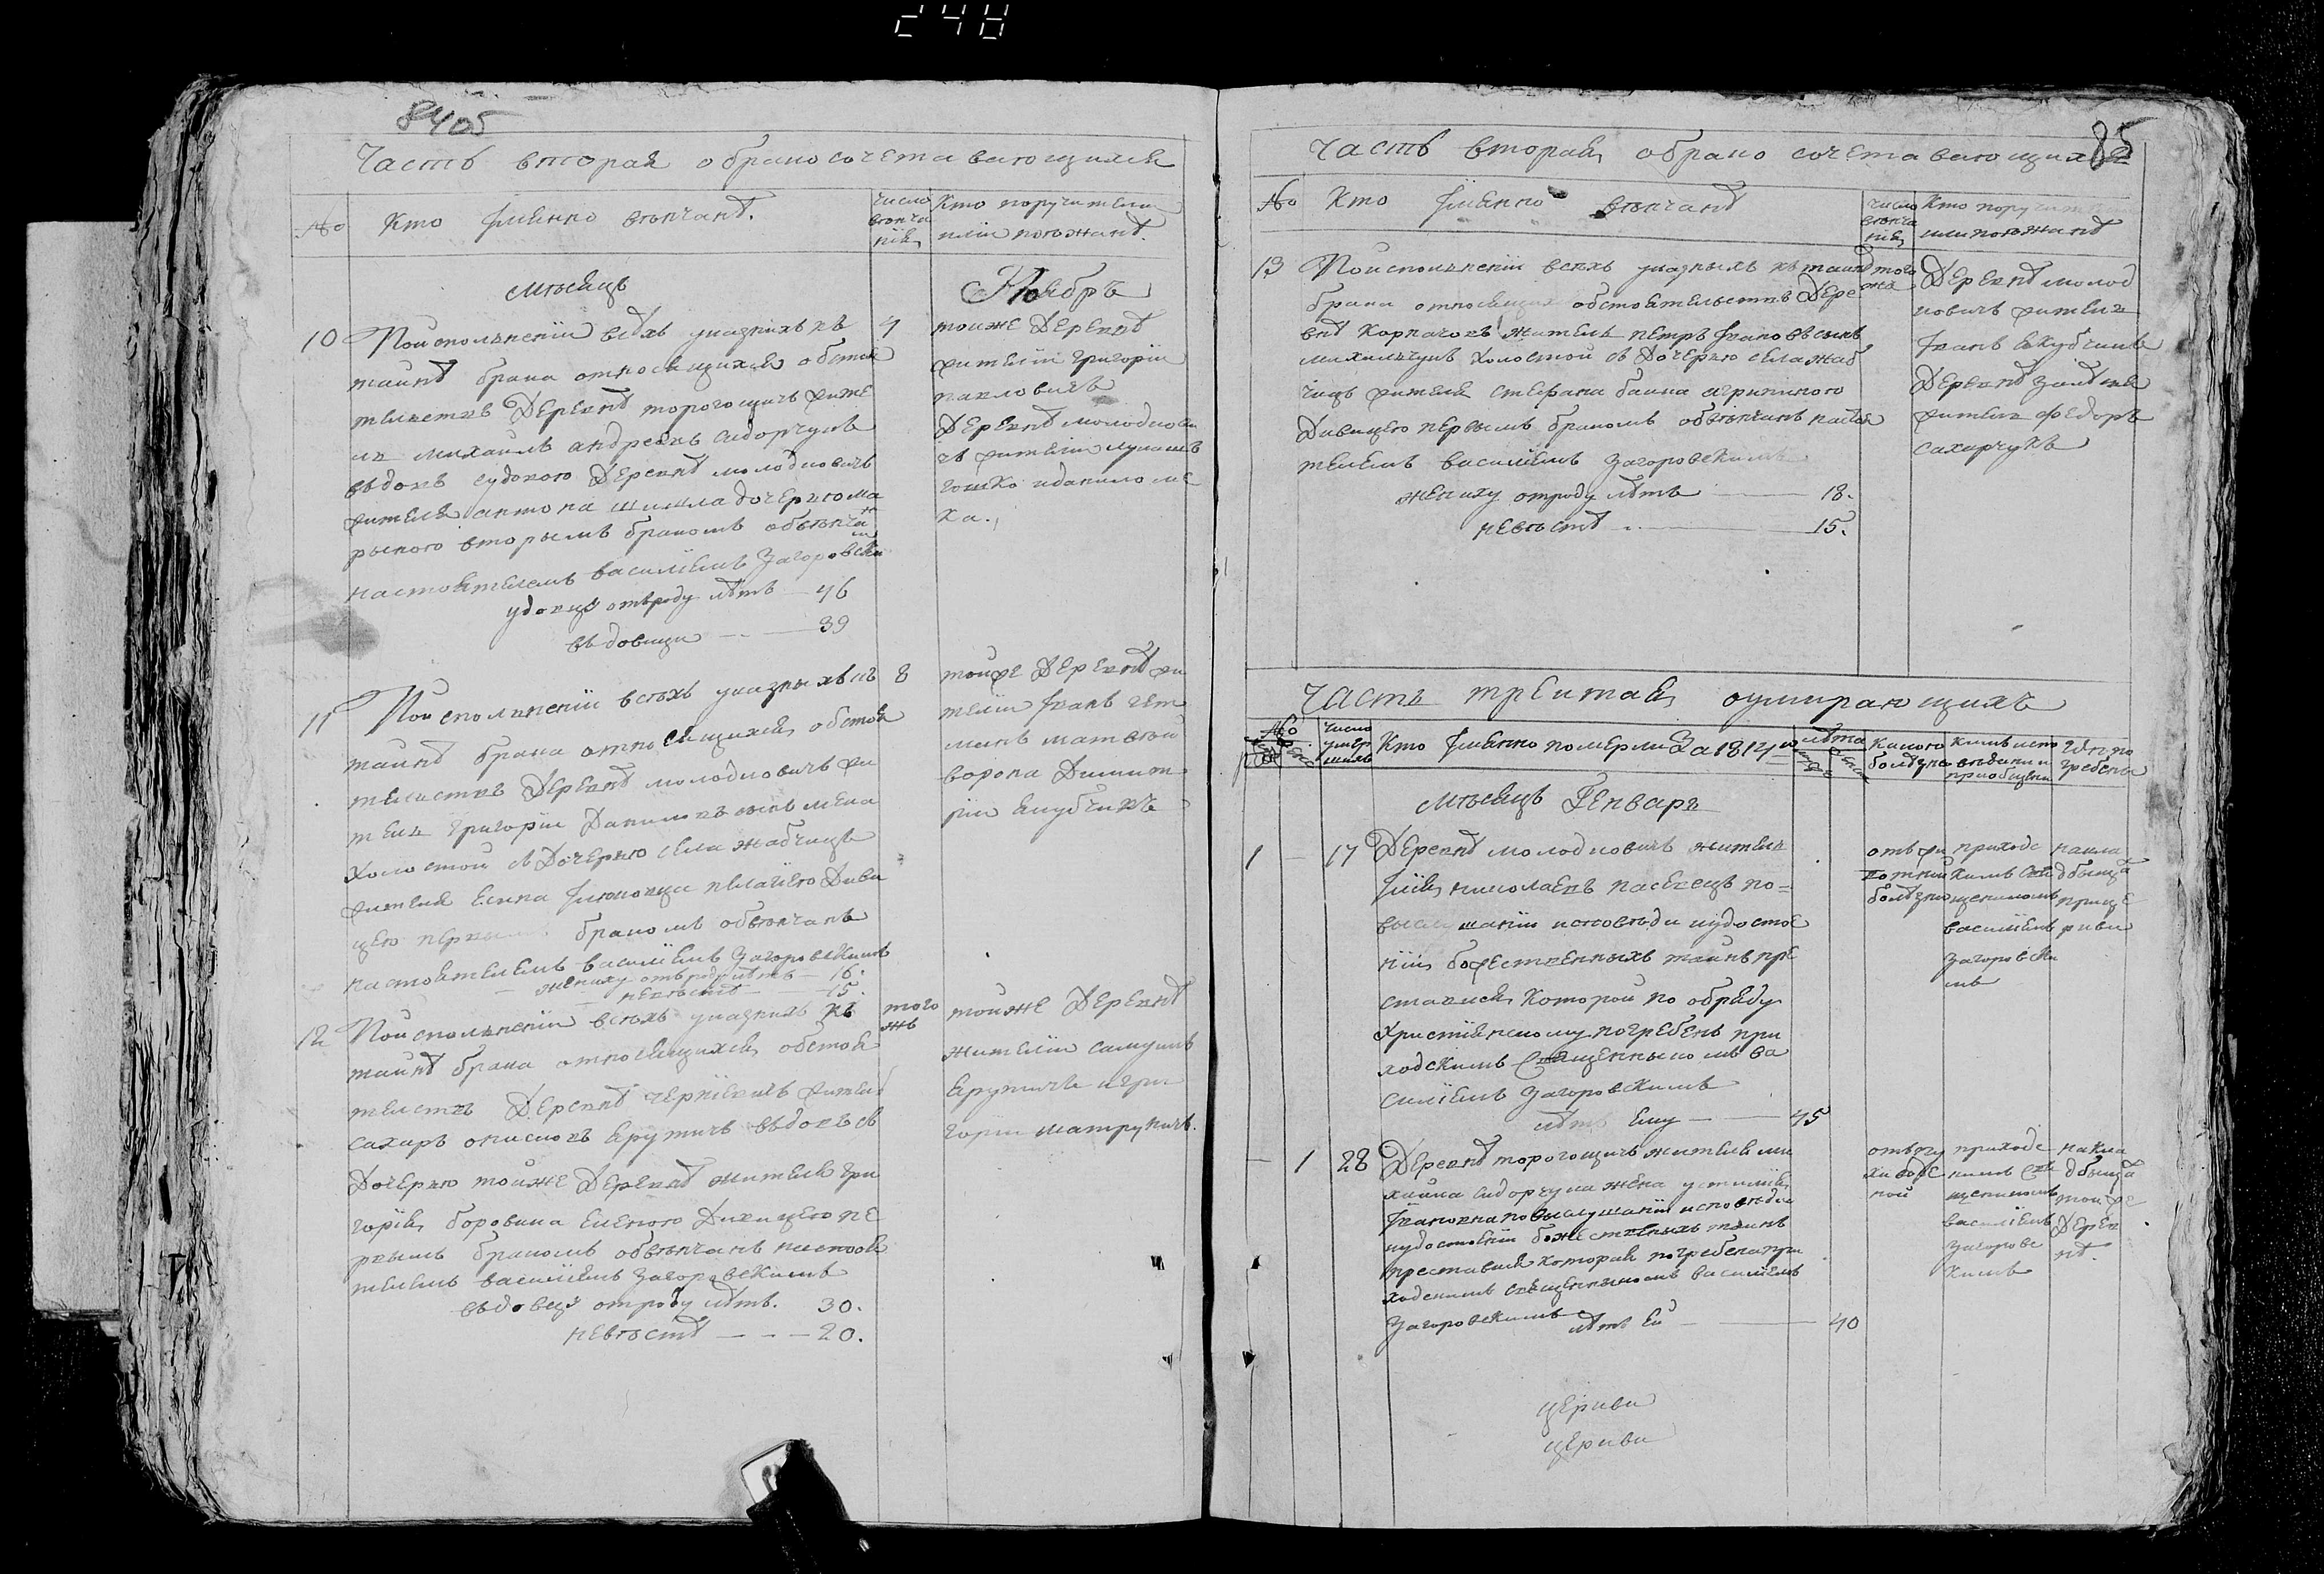 248
8405
Часть вторая обрако сочетавающихся
No
Кто Имянно венчанъ.
число
венча
нія
Кто поручители
или поезжанѣ.
Месяцъ
Ноябрь
10
Поисполненіи всѣхъ указныхъ къ
таинѣ брака относящихся обстоя
телствъ Деревнѣ торогощичь жите
ль михаилъ андреевъ сидорчукъ
вдовъ Деревнѣ молодковичь
жителя антона дочерию ма
рыною вторымъ бракомъ обвенчан
настоятелемъ василіемъ Загоровски
удовцу отъроду лѣтъ — 46
въдовици — 39
7
тоиже Деревнѣ
жителіи григоріи
павловичъ
Деревнѣ молоднови
чъ жителіи лукашъ
гошко иданило ме
ха.
11
Поисполненіи всехъ указныхъ къ
таинѣ брака относящихся обстоя
телствъ Деревнѣ молодковичъ жи
тель Григоріи Даниловъ
холостой съ Дочерию села жабчицъ
жителя пелагіею Диви
цею первымъ бракомъ обвенчанъ
настоятелемъ василіемъ Загоровскимъ
жениху отъроду лѣтъ — 16.
невестѣ — 15.
8
тоиже Деревнѣ жи
теліи Иванъ гет
манъ матвеи
ворона Димит
ріи якубчикъ
12
Поисполненіи всехъ указнихъ къ
таинѣ брака относящихся обстоя
телствъ Деревнѣ чернѣевичъ жител
сахаръ онисковъ ярутичъ вьдовъ съ
Дочерию тоиже Деревнѣ жителя гри
горія боровика еленою Дивицею пе
рвымъ бракомъ обвенчанъ настоя
телемъ василіемъ Загоровскимъ
вьдовцу отроду лѣтъ. 30.
невестѣ — — — 20.
того
жъ
тоиже Деревнѣ
жителіи самуилъ
ярутичъ игри
горіи матруничъ.
85
Часть вторая обрако сочетавающихся
No
Кто Имянно венчанѣ
число
венча
нія
Кто поручители
или поезжанѣ
13
Поисполненіи всехъ указныхъ къ таинѣ
брака относящихся обстоятельствъ Дере
внѣ Корначовъ житель петръ Ивановъ сынъ
михальчукъ холостой съ Дочерию села жаб
чицъ жителя стефана агрипиною
Дивицею первымъ бракомъ обвенчанъ настоя
телемъ василіемъ Загоровскимъ
жениху отроду лѣтъ — 18.
невестѣ — 15.
того
же
Деревнѣ молод
ковичъ житель
Иванъ якубчикъ
Деревнѣ
житель федоръ
сахарчукъ
Часть третитая оумирающихъ
No
число
умер
шихъ
Кто Имянно померли За 1814и
лѣта
какою
болезн
кимъ испо
веданы и
приобщены
Где по
гребены
Месяцъ Генварь
1 — 17
Деревнѣ молодковичъ житель
Іліа николаевъ пасевецъ по=
выслушаніи исповеди иудостое
ніи божественныхъ таинъ пре
ставися Которой по обряду
Христіянскому погребенъ при
ходскимъ Священникомъ ва
силіемъ Загоровскимъ
лѣтъ Ему — 45
отъ жи
вотнои
болезни
приходс
кимъ Свя
щеникомъ
василіемъ
загоровски
мъ
накла
дбища
прице
ркви
— 1 28
Деревнѣ торогощичь жителя ми
хаила сидорчука жена устинія
Ивановна повыслушаніи исповеди
иудостоеніи божественныхъ таинъ
преставися которая погребена при
ходскимъ священникомъ василіемъ
Загоровскимъ
лѣтъ Еи — 40
отъ пу
приходс
кимъ свя
щеникомъ
василіемъ
загоровс
кимъ
накла
дбища
тоиже
Дерев
нѣ.
церкви
церкви